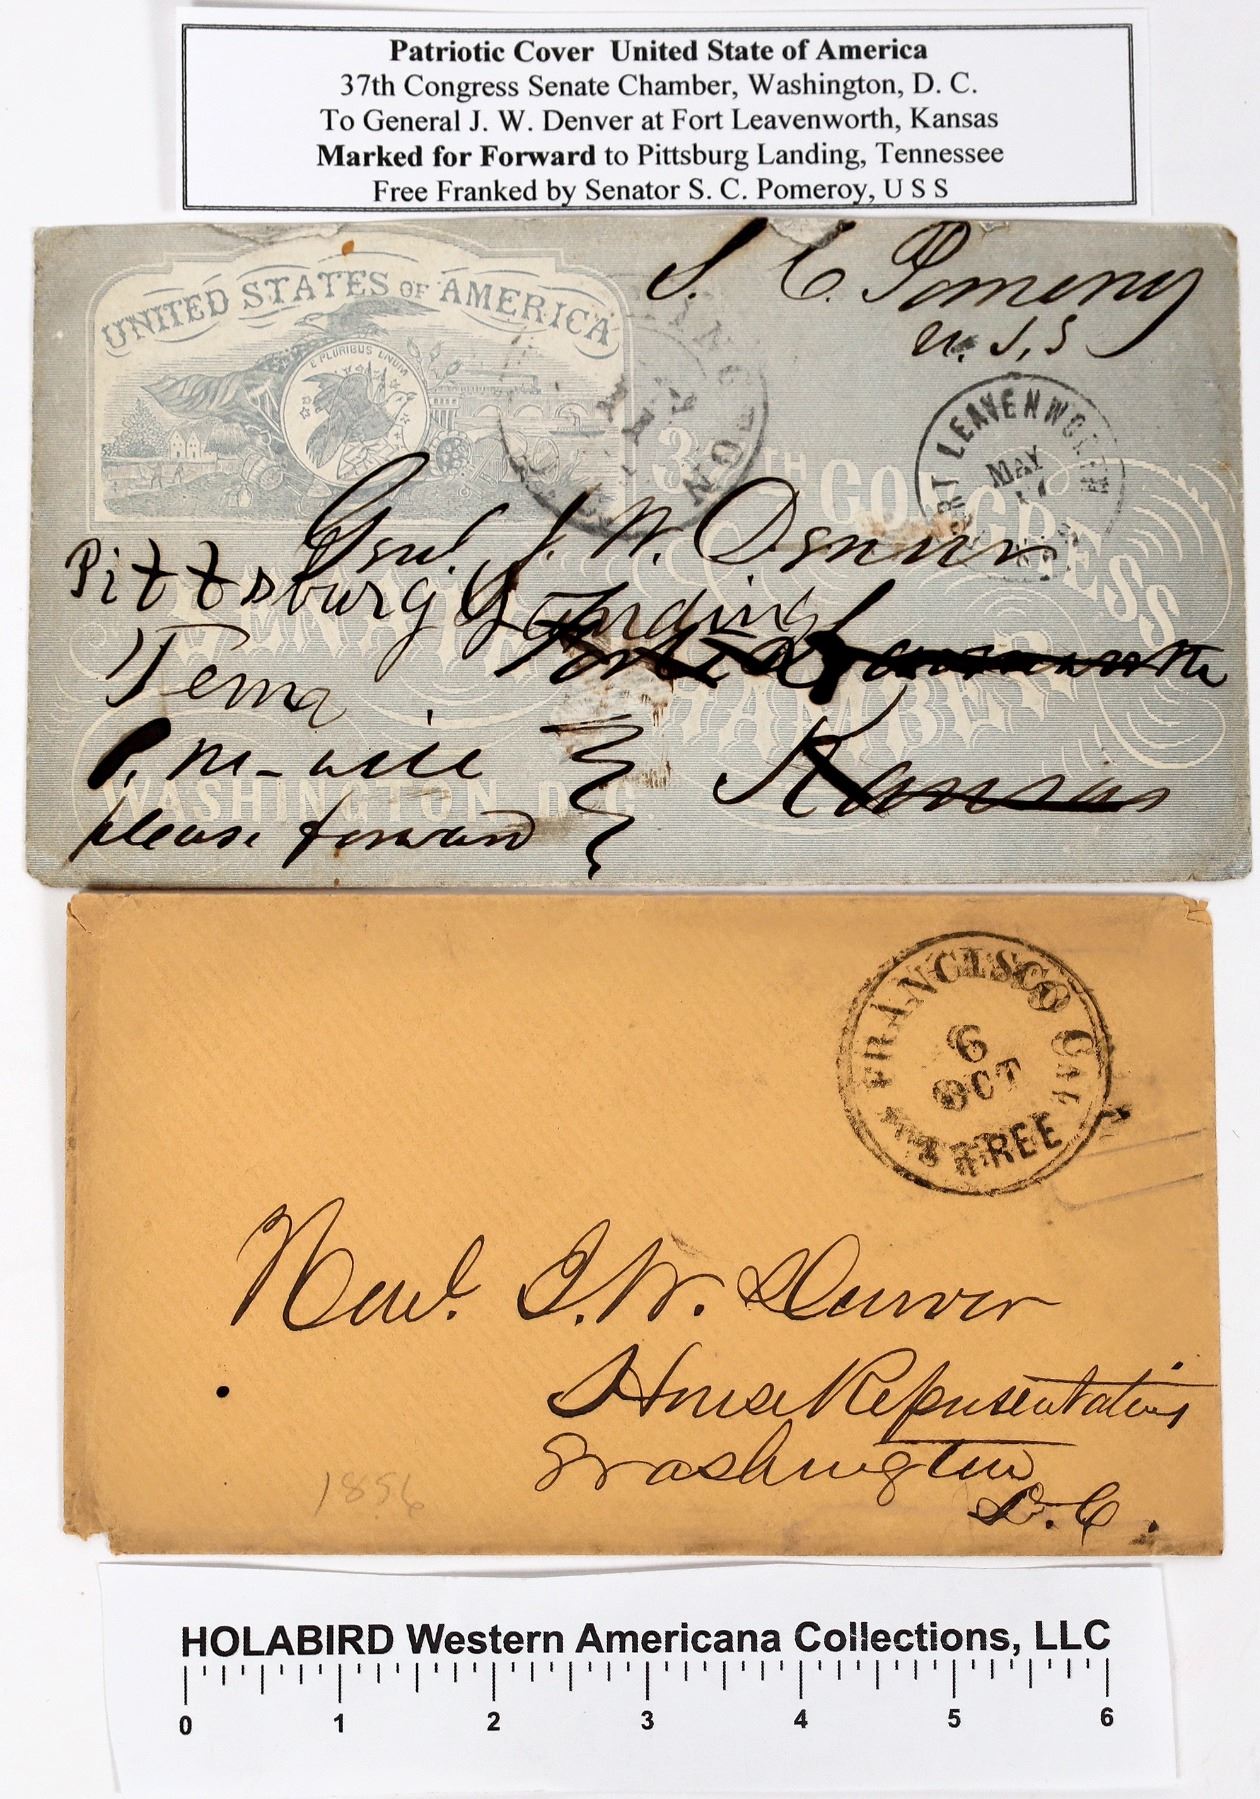 Patriotic Cover United State of America
37th Congress Senate Chamber, Washington, D. C.
To General J. W. Denver at Fort Leavenworth, Kansas
Marked for Forward to Pittsburg Landing, Tennessee
Free Franked by Senator S. C. Pomeroy, U S S
S. C. Pomeroy
U. S. S
UNITED STATES OF AMERICA
E PLURIBUS UNUM
37TH CONGRESS
SENATE CHAMBER
WASHINGTON, D.C.
FORT LEAVENWORTH
MAY
Genl. J. W. Denver
Pittsburg Landing
Fort Leavenworth
Tenna
Kansas
P. M. will
please forward
FRANCISCO CAL
6
OCT
FREE
Honl. J. W. Denver
House Representatives
Washington
D. C.
1856
HOLABIRD Western Americana Collections, LLC
0 1 2 3 4 5 6